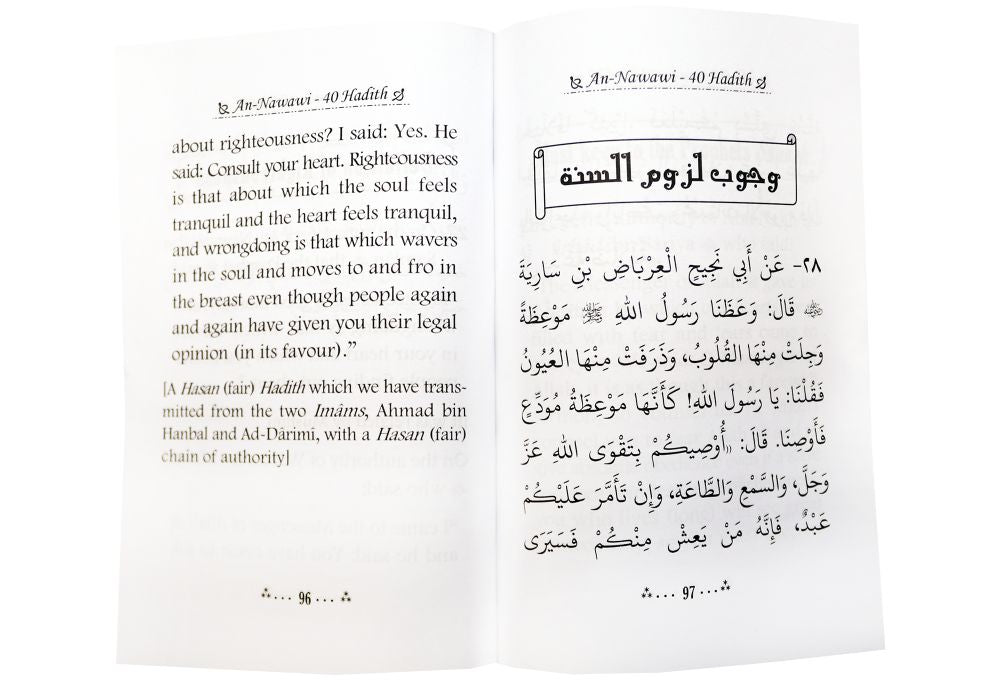 An-Nawawi - 40 Hadith
about righteousness? I said: Yes. He
said: Consult your heart. Righteousness
is that about which the soul feels
tranquil and the heart feels tranquil,
and wrongdoing is that which wavers
in the soul and moves to and fro in
the breast even though people again
and again have given you their legal
opinion (in its favour).”
[A Hasan (fair) Hadith which we have trans-
mitted from the two Imâms, Ahmad bin
Hanbal and Ad-Dârimi, with a Hasan (fair)
chain of authority]
96
An-Nawawi - 40 Hadith
وجوب لزوم السنة
٢٨- عَنْ أَبِي نَجِيحٍ الْعِرْبَاضِ بْنِ سَارِيَةَ
رضي الله عنه قَالَ: وَعَظَنَا رَسُولُ اللهِ ﷺ مَوْعِظَةً
وَجِلَتْ مِنْهَا القُلُوبُ، وَذَرَفَتْ مِنْهَا العُيُونُ
فَقُلْنَا: يَا رَسُولَ اللهِ! كَأَنَّهَا مَوْعِظَةُ مُوَدِّعٍ
فَأَوْصِنَا. قَالَ: «أُوصِيكُمْ بِتَقْوَى اللهِ عَزَّ
وَجَلَّ، وَالسَّمْعِ وَالطَّاعَةِ، وَإِنْ تَأَمَّرَ عَلَيْكُمْ
عَبْدٌ، فَإِنَّهُ مَنْ يَعِشْ مِنْكُمْ فَسَيَرَى
97